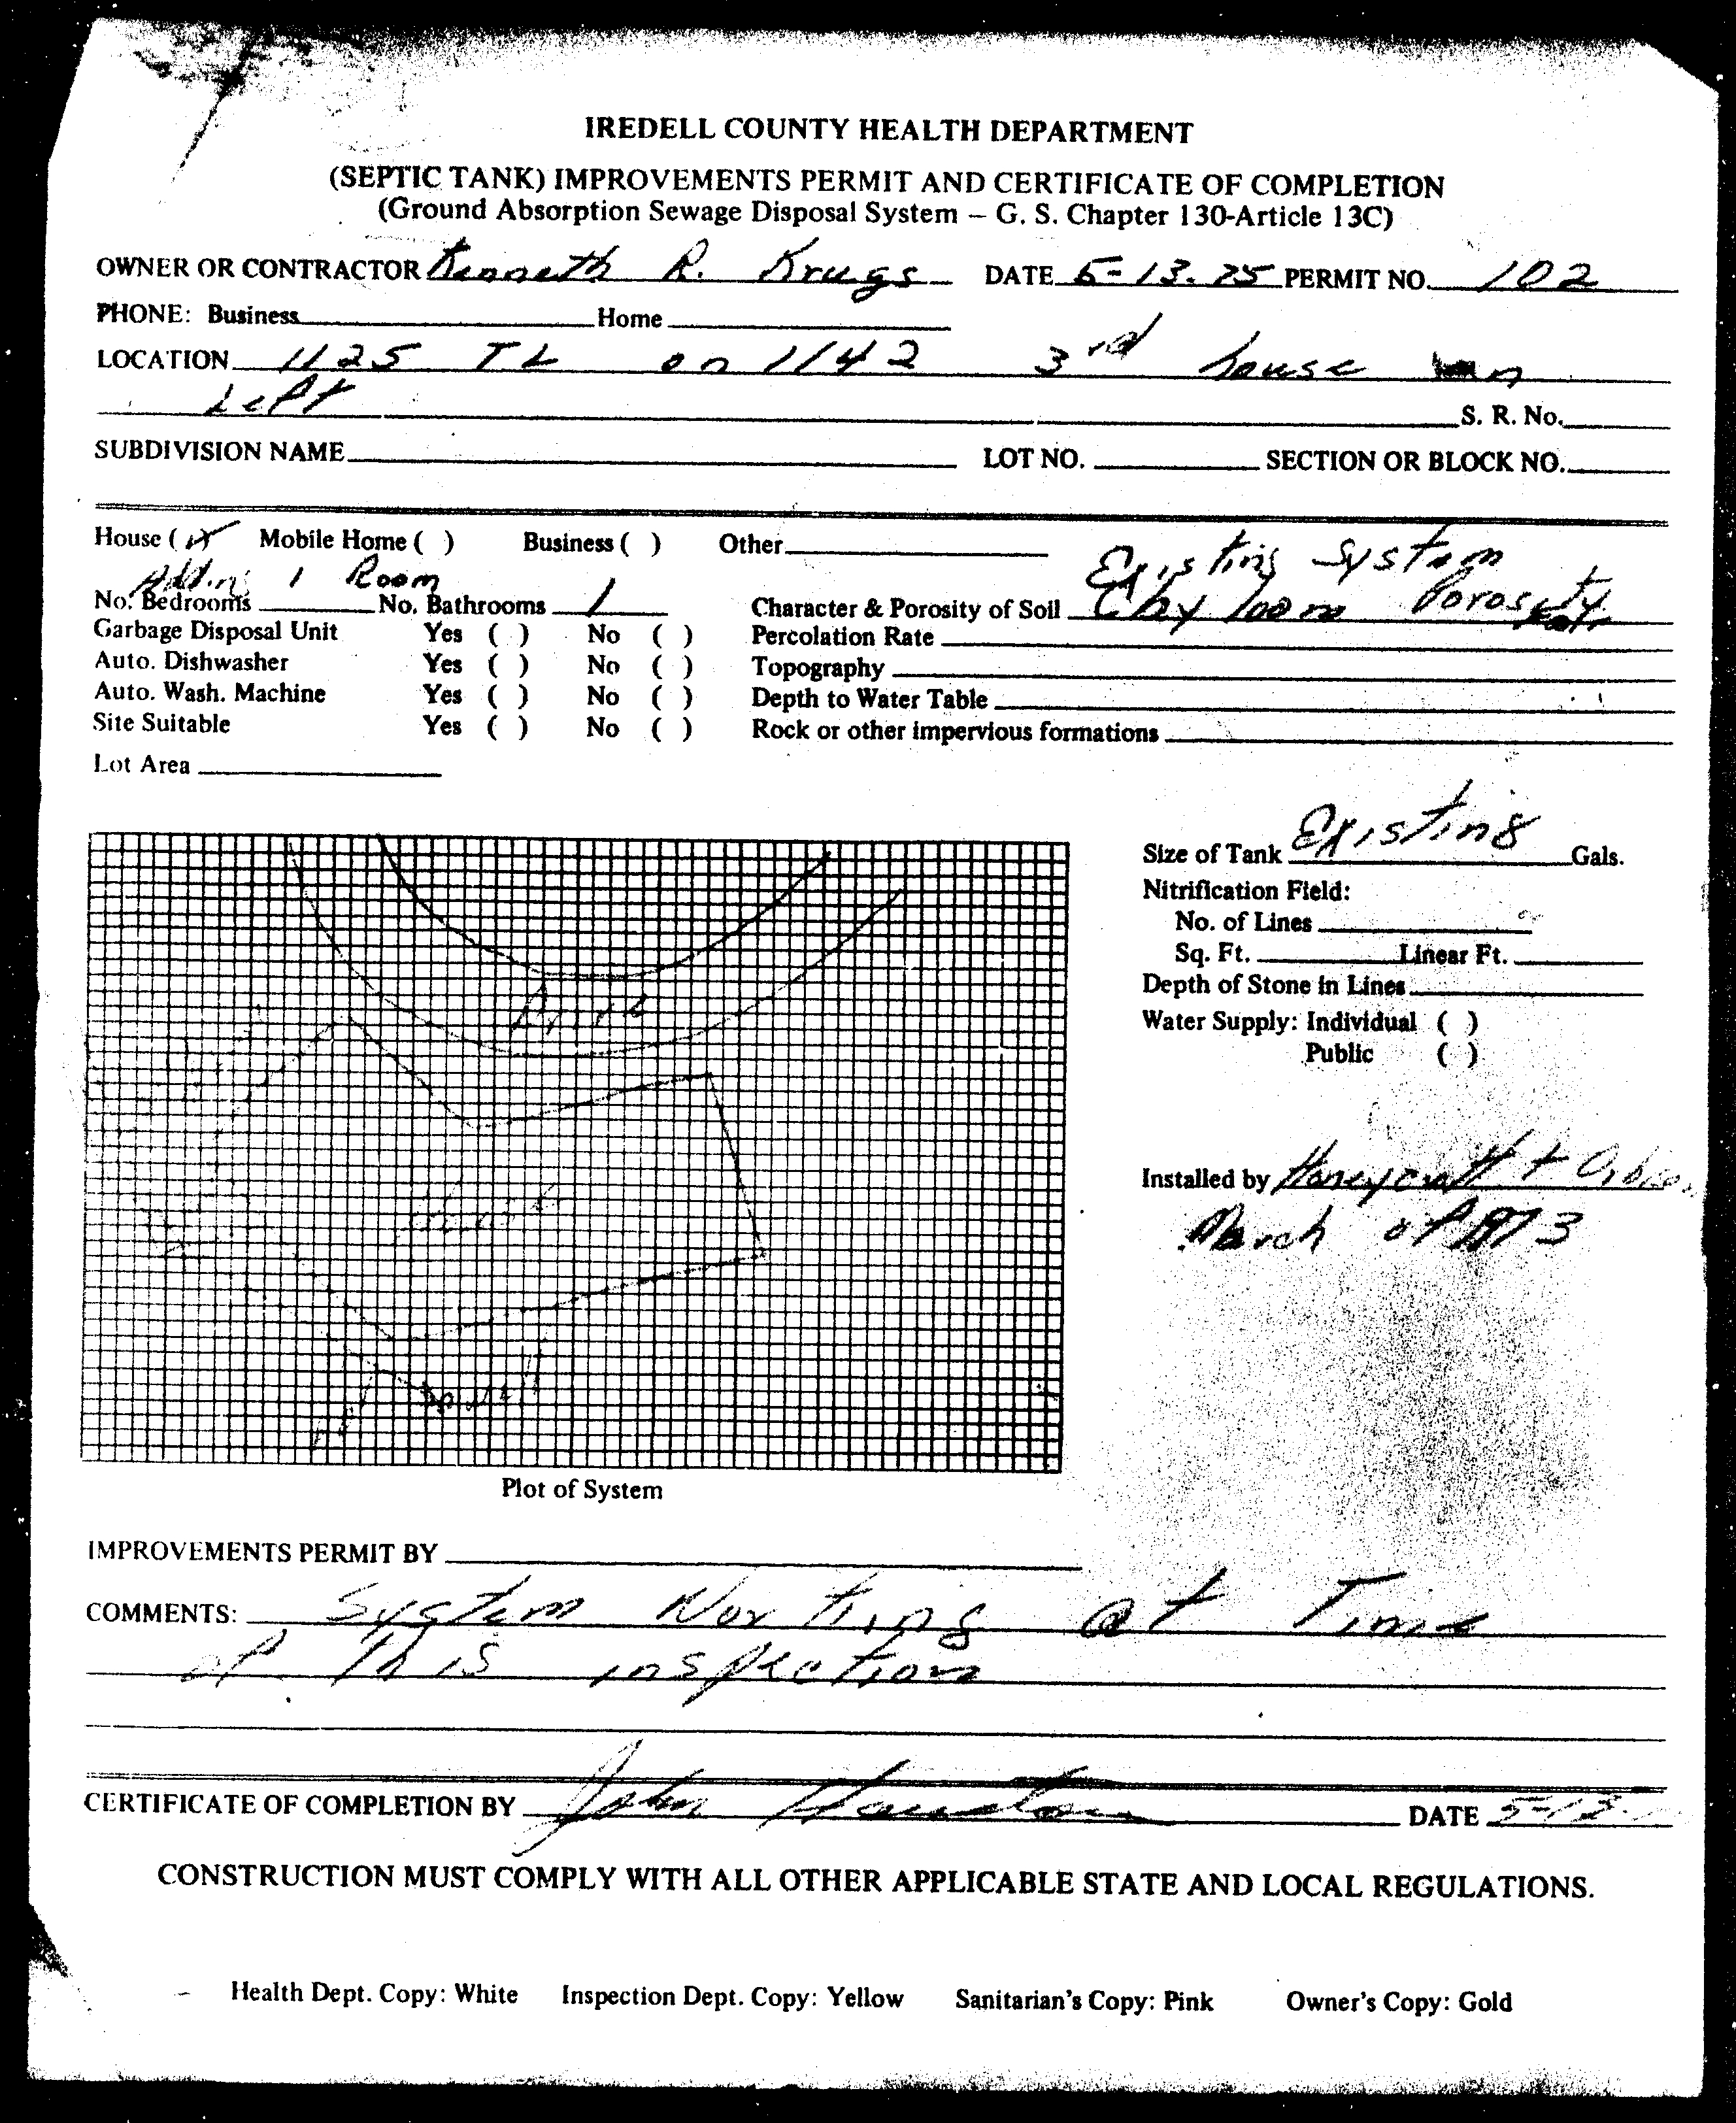 IREDELL COUNTY HEALTH DEPARTMENT
(SEPTIC TANK) IMPROVEMENTS PERMIT AND CERTIFICATE OF COMPLETION
(Ground Absorption Sewage Disposal System – G. S. Chapter 130-Article 13C)
OWNER OR CONTRACTOR Kenneth R. DATE 5-13-75 PERMIT NO. 102
PHONE: Business Home
LOCATION 1125 TL on 1142 3rd house on
Left S. R. No.
SUBDIVISION NAME LOT NO. SECTION OR BLOCK NO.
House ( ) Mobile Home ( ) Business ( ) Other Existing System
Adding 1 Room
No. Bedrooms No. Bathrooms 1 Character & Porosity of Soil Clay loam Porosity
Garbage Disposal Unit Yes ( ) No ( ) Percolation Rate
Auto. Dishwasher Yes ( ) No ( ) Topography
Auto. Wash. Machine Yes ( ) No ( ) Depth to Water Table
Site Suitable Yes ( ) No ( ) Rock or other impervious formations
Lot Area
Size of Tank Existing Gals.
Nitrification Field:
No. of Lines
Sq. Ft. Linear Ft.
Depth of Stone in Lines
Water Supply: Individual ( )
Public ( )
Drive
Installed by Honeycutt +
March of 1973
Plot of System
IMPROVEMENTS PERMIT BY
COMMENTS: System Working at Time
of This inspection
CERTIFICATE OF COMPLETION BY John DATE 5-13
CONSTRUCTION MUST COMPLY WITH ALL OTHER APPLICABLE STATE AND LOCAL REGULATIONS.
Health Dept. Copy: White Inspection Dept. Copy: Yellow Sanitarian's Copy: Pink Owner's Copy: Gold